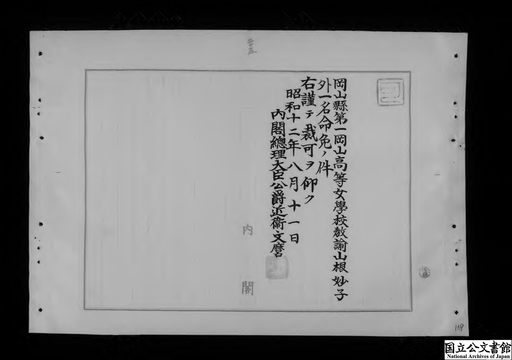 岡山縣第一岡山高等女學校教諭山根妙子
外一名命免ノ件
右謹テ裁可ヲ仰ク
昭和十二年八月十一日
内閣總理大臣公爵近衞文麿
内閣
国立公文書館
National Archives of Japan